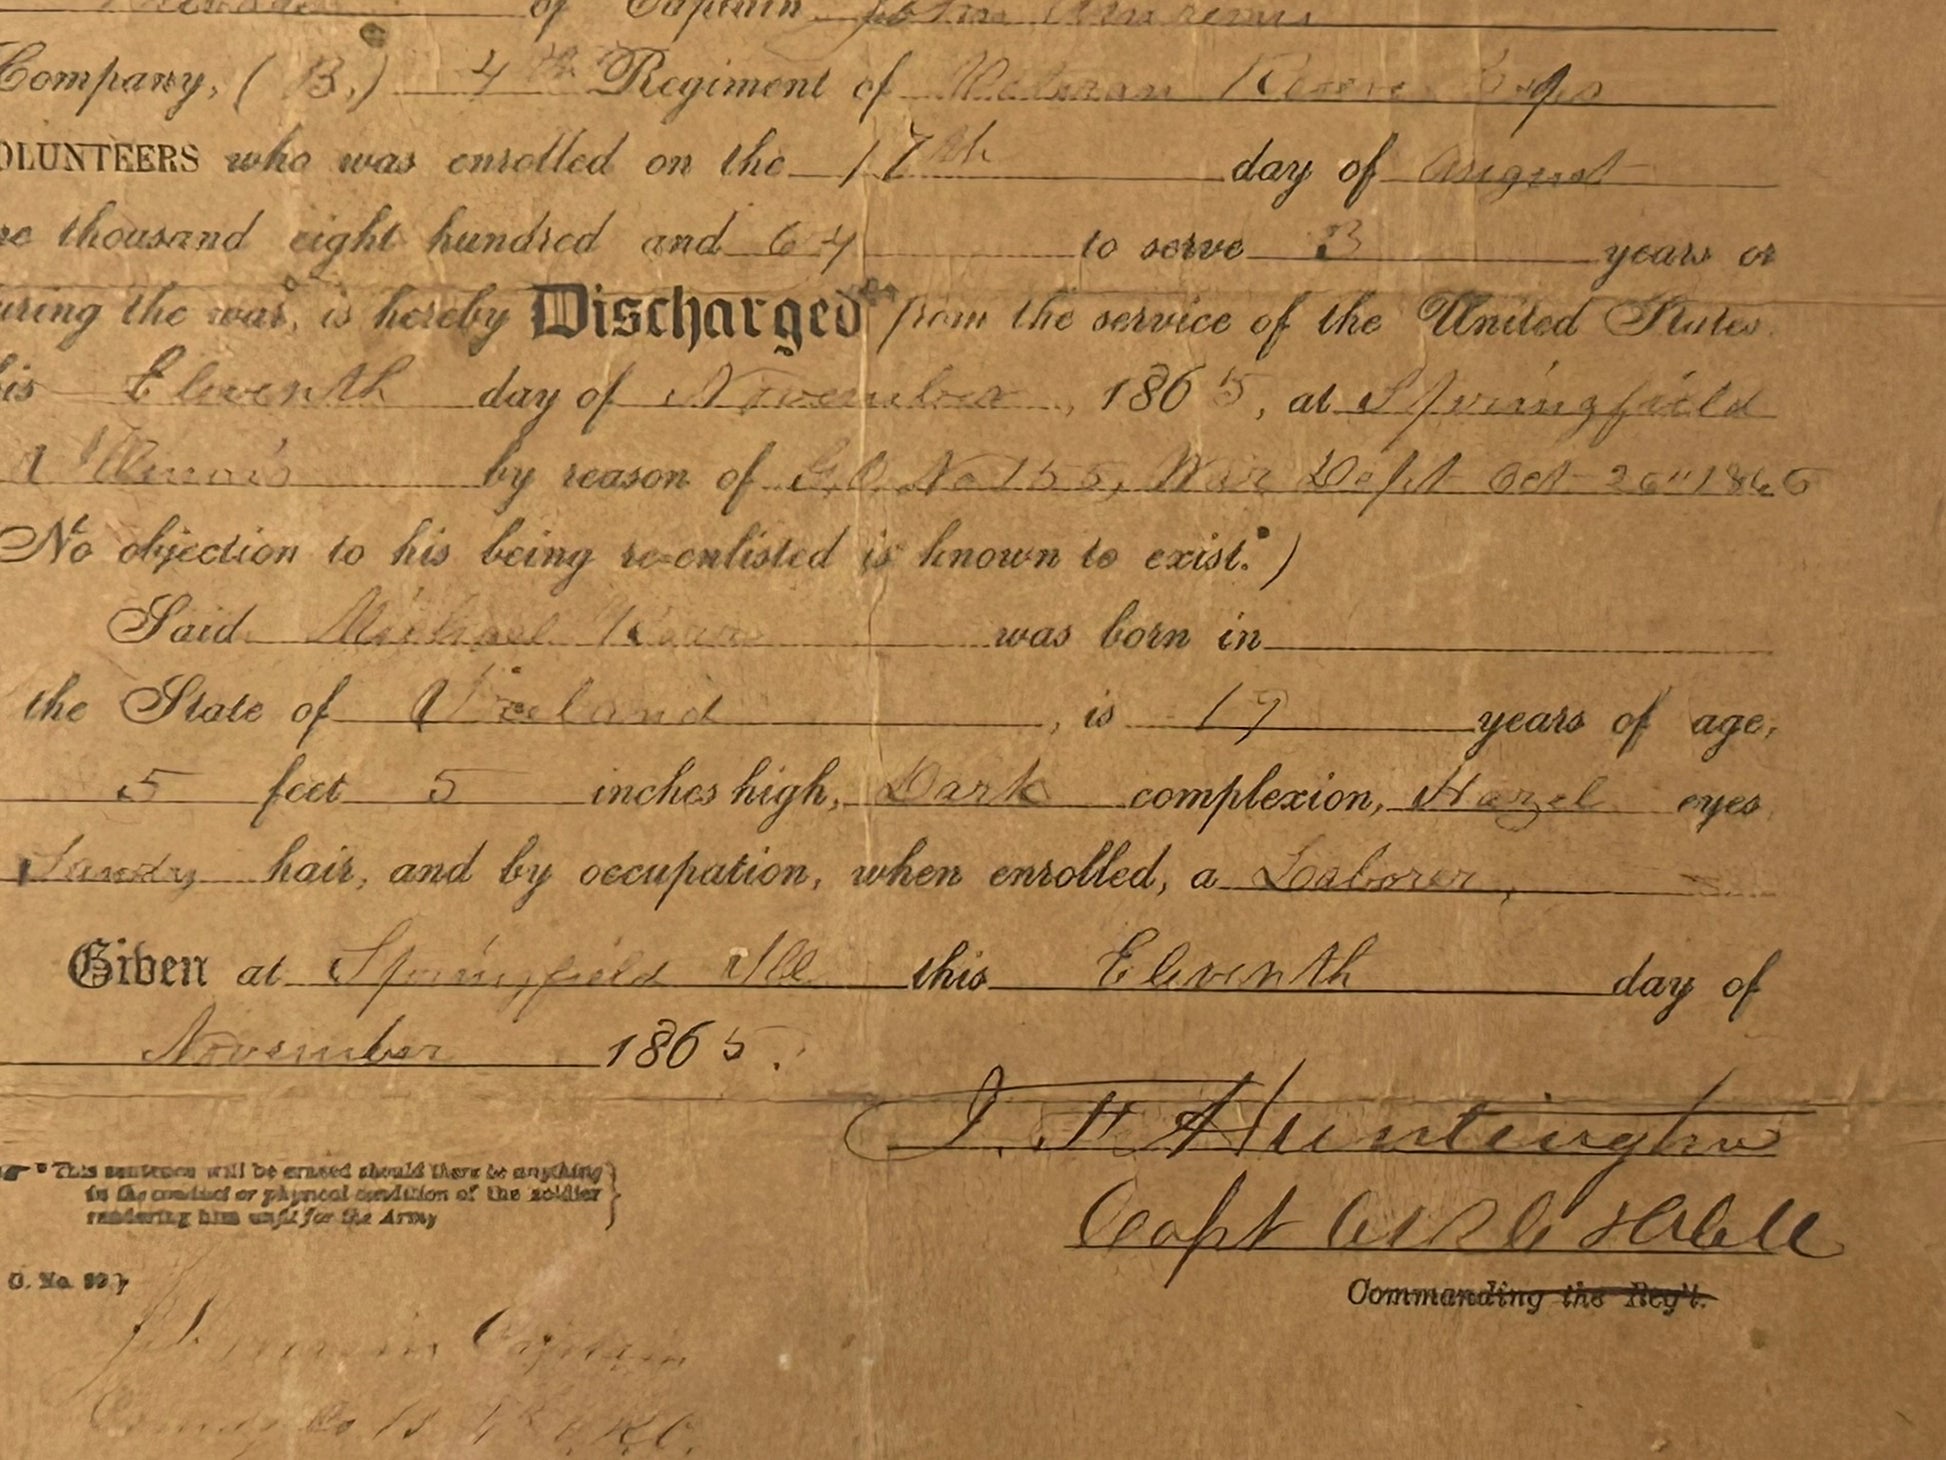 of Captain John
Company, (B,) 4th Regiment of Veteran Reserve Corps
OLUNTEERS who was enrolled on the 17th day of August
ne thousand eight hundred and 64 to serve 3 years or
uring the war, is hereby Discharged from the service of the United States.
his Eleventh day of November, 1865, at Springfield
Illinois by reason of G.O. No 155, War Dept Oct 26" 1865
No objection to his being re-enlisted is known to exist.*)
Said Michael was born in
the State of Ireland, is 19 years of age,
5 feet 5 inches high, Dark complexion, Hazel eyes,
Sandy hair, and by occupation, when enrolled, a Laborer,
Given at Springfield Ill this Eleventh day of
November 1865.
J. H. Huntington
Capt
Commanding the Reg't.
* This sentence will be erased should there be anything
in the conduct or physical condition of the soldier
rendering him unfit for the Army
G. No. 99}
Captain
Comdg Co B 4th V.R.C.